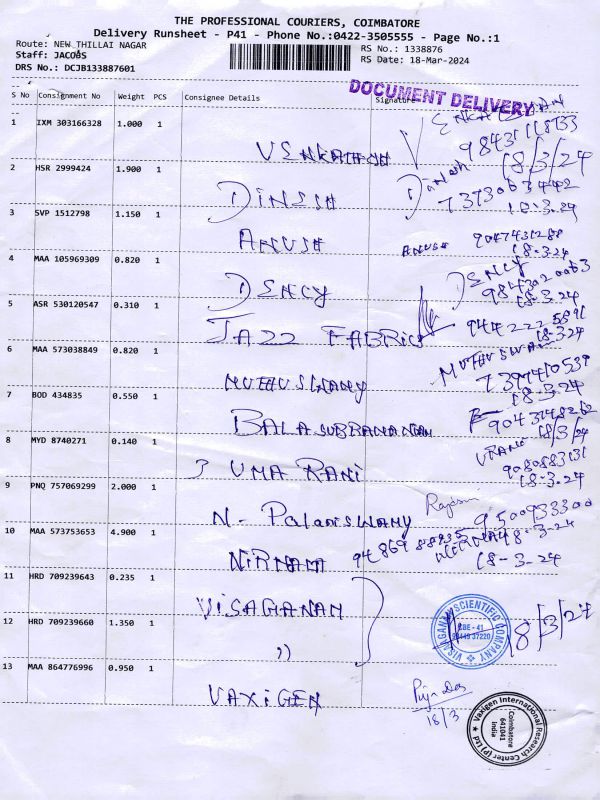 THE PROFESSIONAL COURIERS, COIMBATORE
Delivery Runsheet - P41 - Phone No.:0422-3505555 - Page No.:1
Route: NEW THILLAI NAGAR
RS No.: 1338876
Staff: JACOBS
RS Date: 18-Mar-2024
DRS No.: DCJB133887601
DOCUMENT DELIVERY
S No Consignment No Weight PCS Consignee Details Signature
1 IXM 303166328 1.000 1
18/3/24
2 HSR 2999424 1.900 1
DINESH Dinesh
18-3-24
3 SVP 1512798 1.150 1
ANUSH ANUSH
18-3-24
4 MAA 105969309 0.820 1
DENCY DENCY
18-3-24
5 ASR 530120547 0.310 1
JAZZ FABRICS
18-3-24
6 MAA 573038849 0.820 1
MUTHUSWAMY
18-3-24
7 BOD 434835 0.550 1
BALASUBRAMANIAM
18/3/24
8 MYD 8740271 0.140 1
UMA RANI
18-3-24
9 PNQ 757069299 2.000 1
N- PalaniSWAMY
9500933300
18-3-24
10 MAA 573753653 4.900 1
18-3-24
11 HRD 709239643 0.235 1
VISAGANAM
12 HRD 709239660 1.350 1
"
VISAGANAM SCIENTIFIC COMPANY
CBE - 41
18/3/24
13 MAA 864776996 0.950 1
VAXIGEN
18/3
Vaxigen International Research Center (P) Ltd
Coimbatore
641041
India